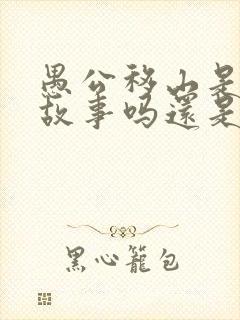 愚公移山是
故事吗還是
黑心籠包